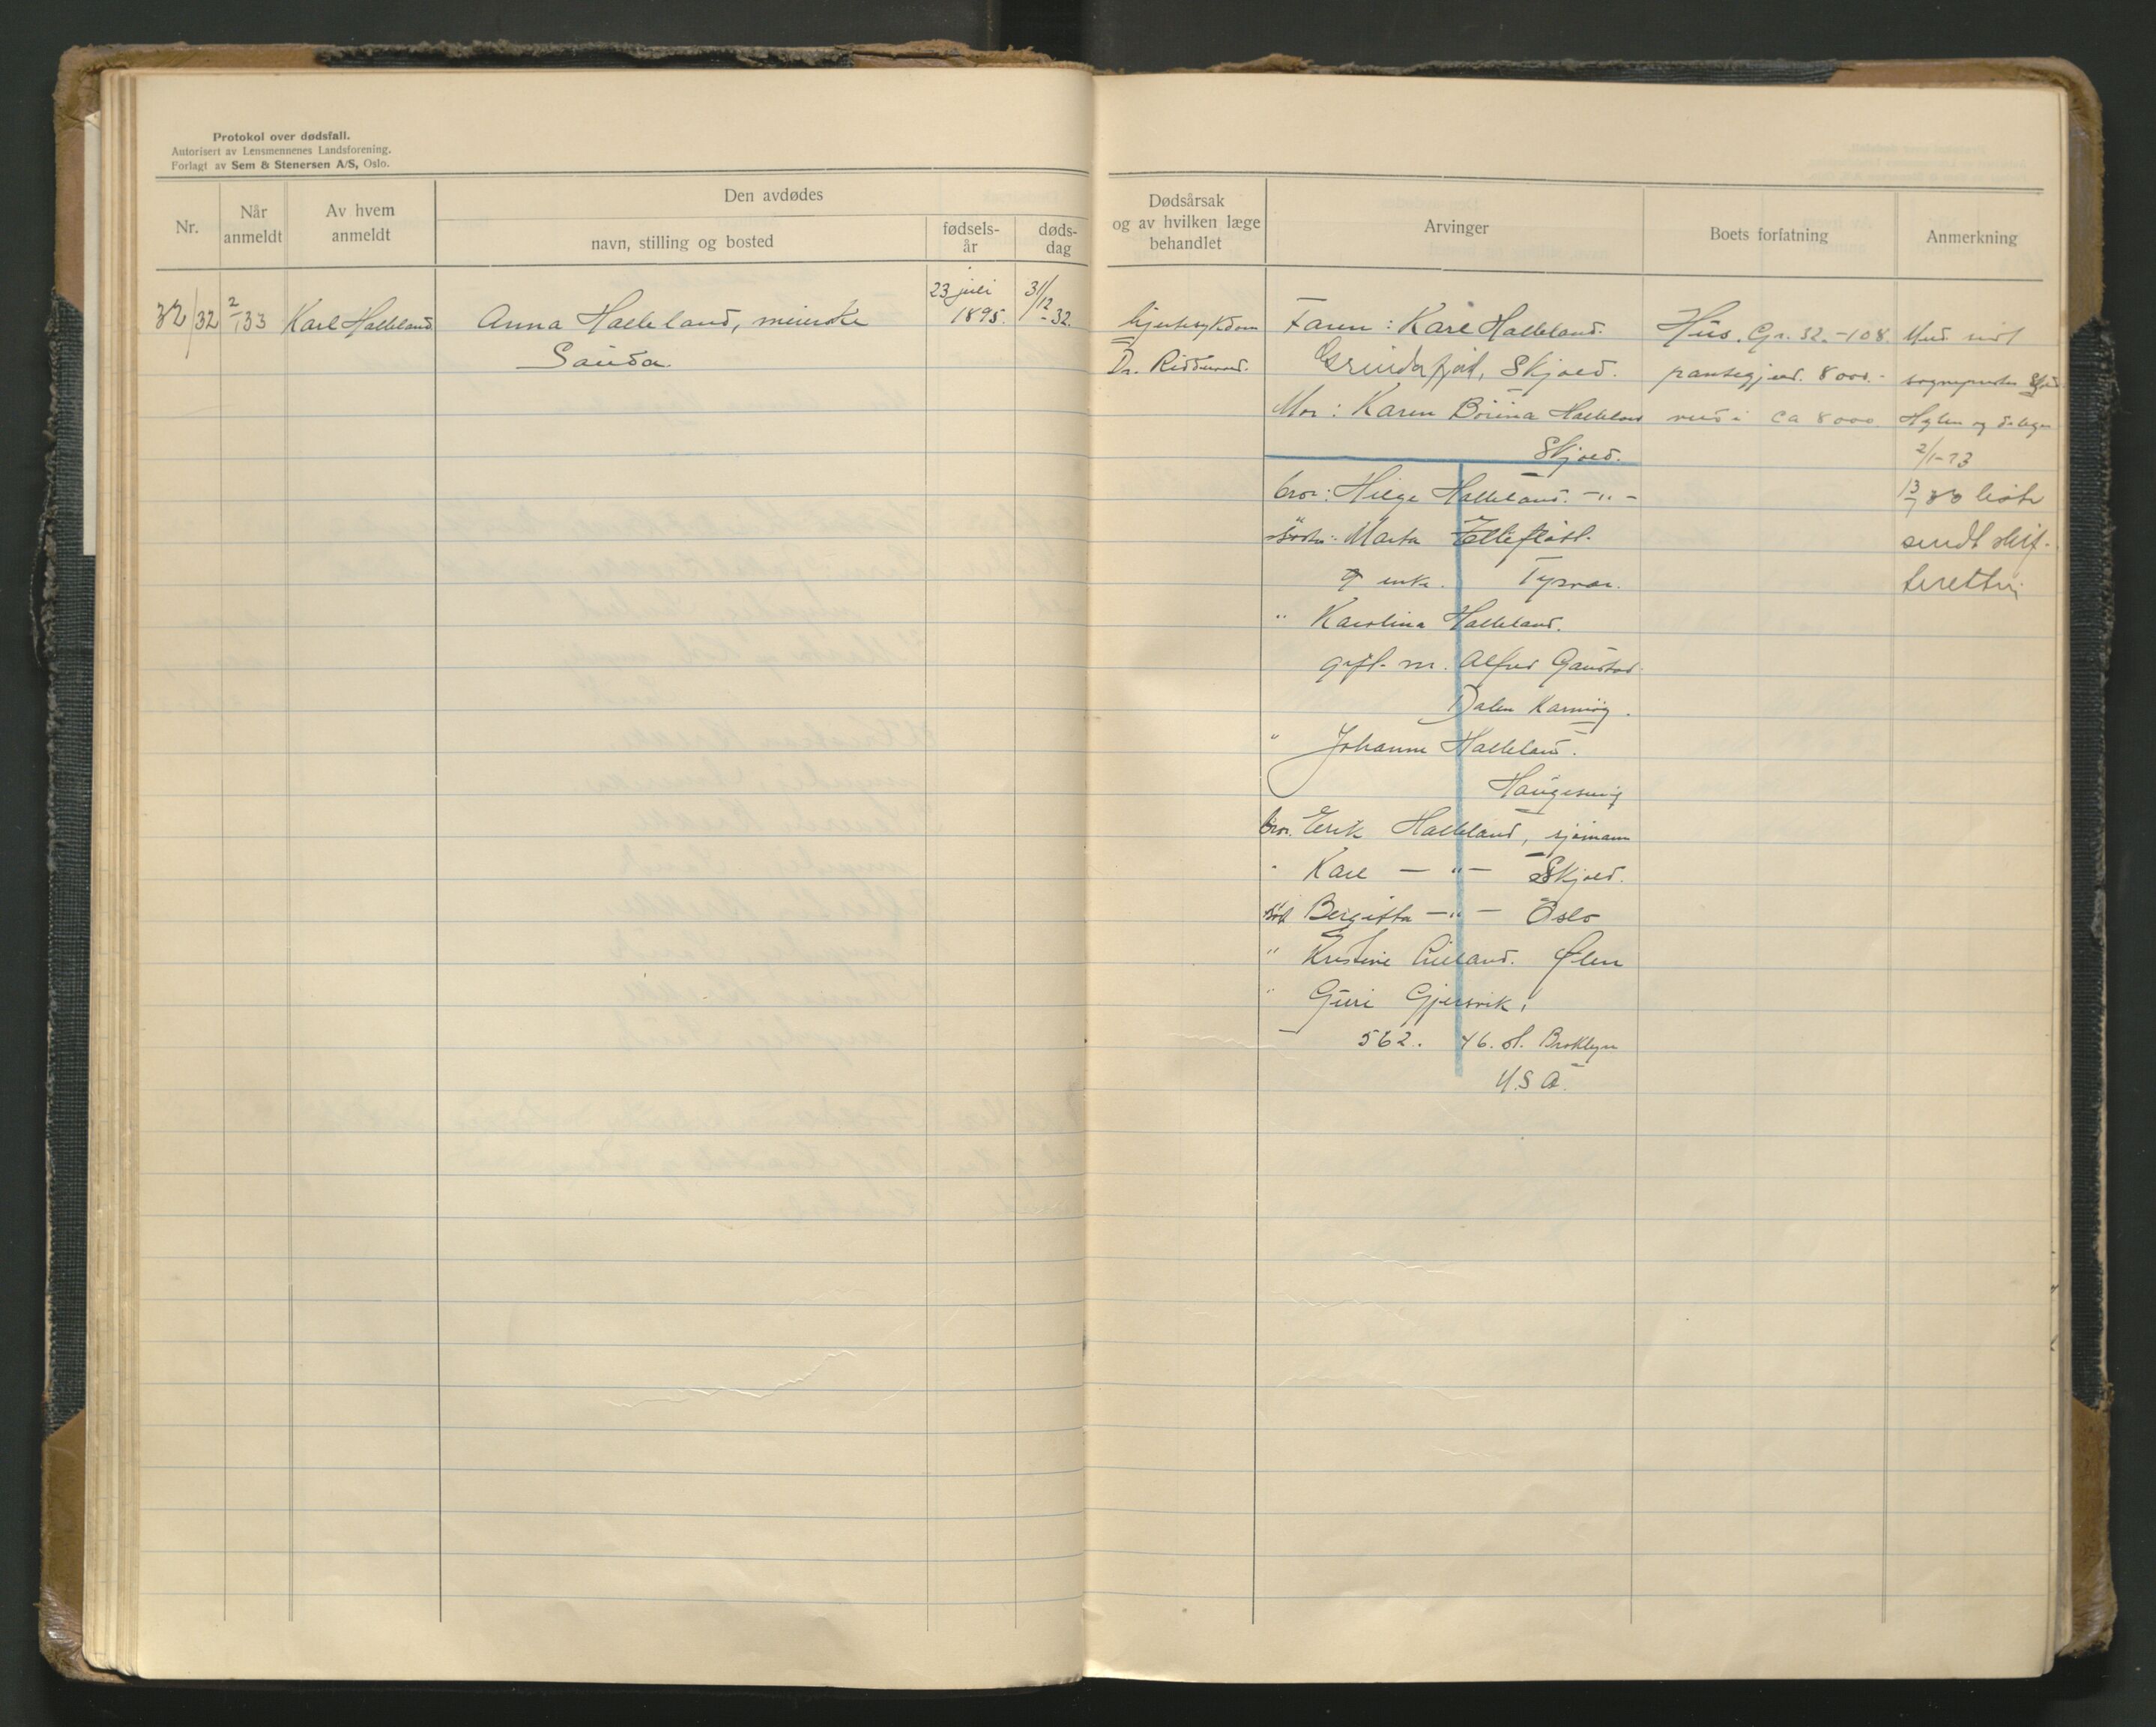 Protokol over dødsfall.
Autorisert av Lensmennenes Landsforening.
Forlagt av Sem & Stenersen A/S, Oslo.
Nr.
Når anmeldt
Av hvem anmeldt
Den avdødes
navn, stilling og bosted
fødsels-år
døds-dag
Dødsårsak og av hvilken læge behandlet
Arvinger
Boets forfatning
Anmerkning
32/32
2/1 33
Karl Halleland
Anna Halleland, meierske
Sauda
23 juli
1895.
31/12-32.
hjertesykdom
Dr.
Faren: Karl Halleland.
Grindefjord, Skjold.
Mor: Karen Halleland
Skjold.
bror: Helge Halleland. -"-
Søster: Marta
enke. Tysvær.
" Karolina Halleland.
gift m. Alfred Gaustad
Dalen Karmøy.
" Johanne Halleland.
Haugesund
bror. Erik Halleland, sjømann
" Karl -"- Skjold.
Søst Bergitta -"- Oslo
" Kristine Ølen
" Guri Gjersvik,
562. 46. st. Broklyn
U.S.A.
Hus. Gr. 32.-108.
pantegjeld. 8000.-
verdi ca 8000.
Med. sendt
sogneprest
Hylen og
2/1-33
liste
sendt skif-
teretten